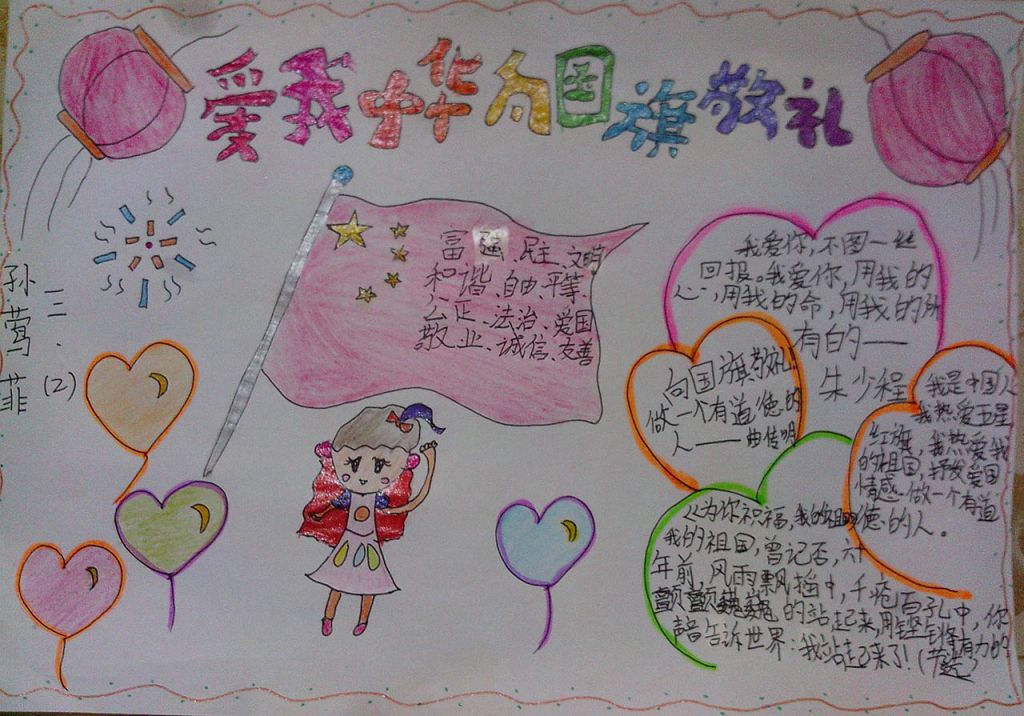 爱我中华向国旗敬礼
富强、民主、文明
和谐、自由、平等、
公正、法治、爱国
敬业、诚信、友善
孙莺菲
三.(2)
我爱你,不图一丝
回报。我爱你,用我的
心,用我的命,用我的所
有的——
朱少程
向国旗敬礼,
做一个有道德的
人——曲传明
我是中国人
我热爱五星
红旗,我热爱我
的祖国,抒发爱国
情感.做一个有道
德的人。
《为你祝福,我的祖国》
我的祖国,曾记否,六十
年前,风雨飘摇中,千疮百孔中,你
颤颤巍巍的站起来,用
声音告诉世界:我站起来了!(节选)